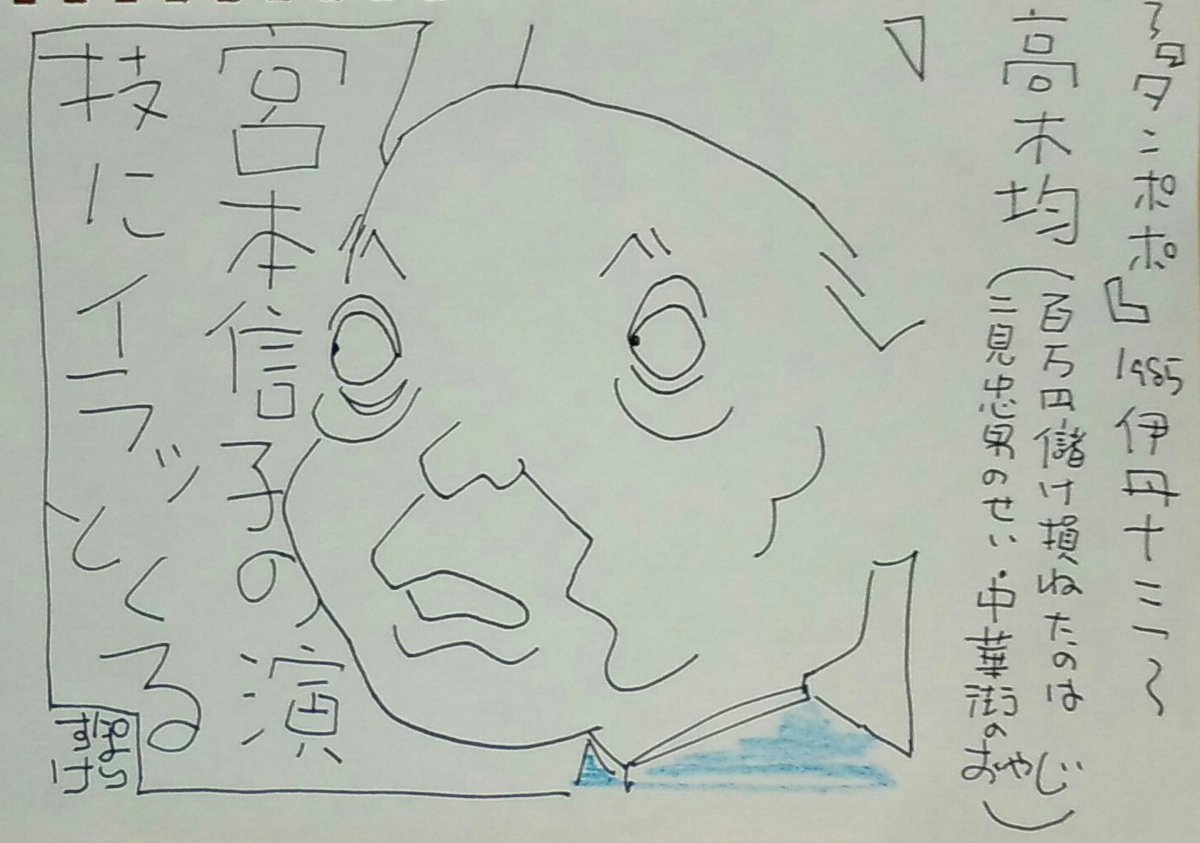 〜『タンポポ』1985伊丹十三〜
高木均
(百万円儲け損ねたのは
二見忠男のせい・中華街のおやじ)
宮本信子の演
技にイラッとくる